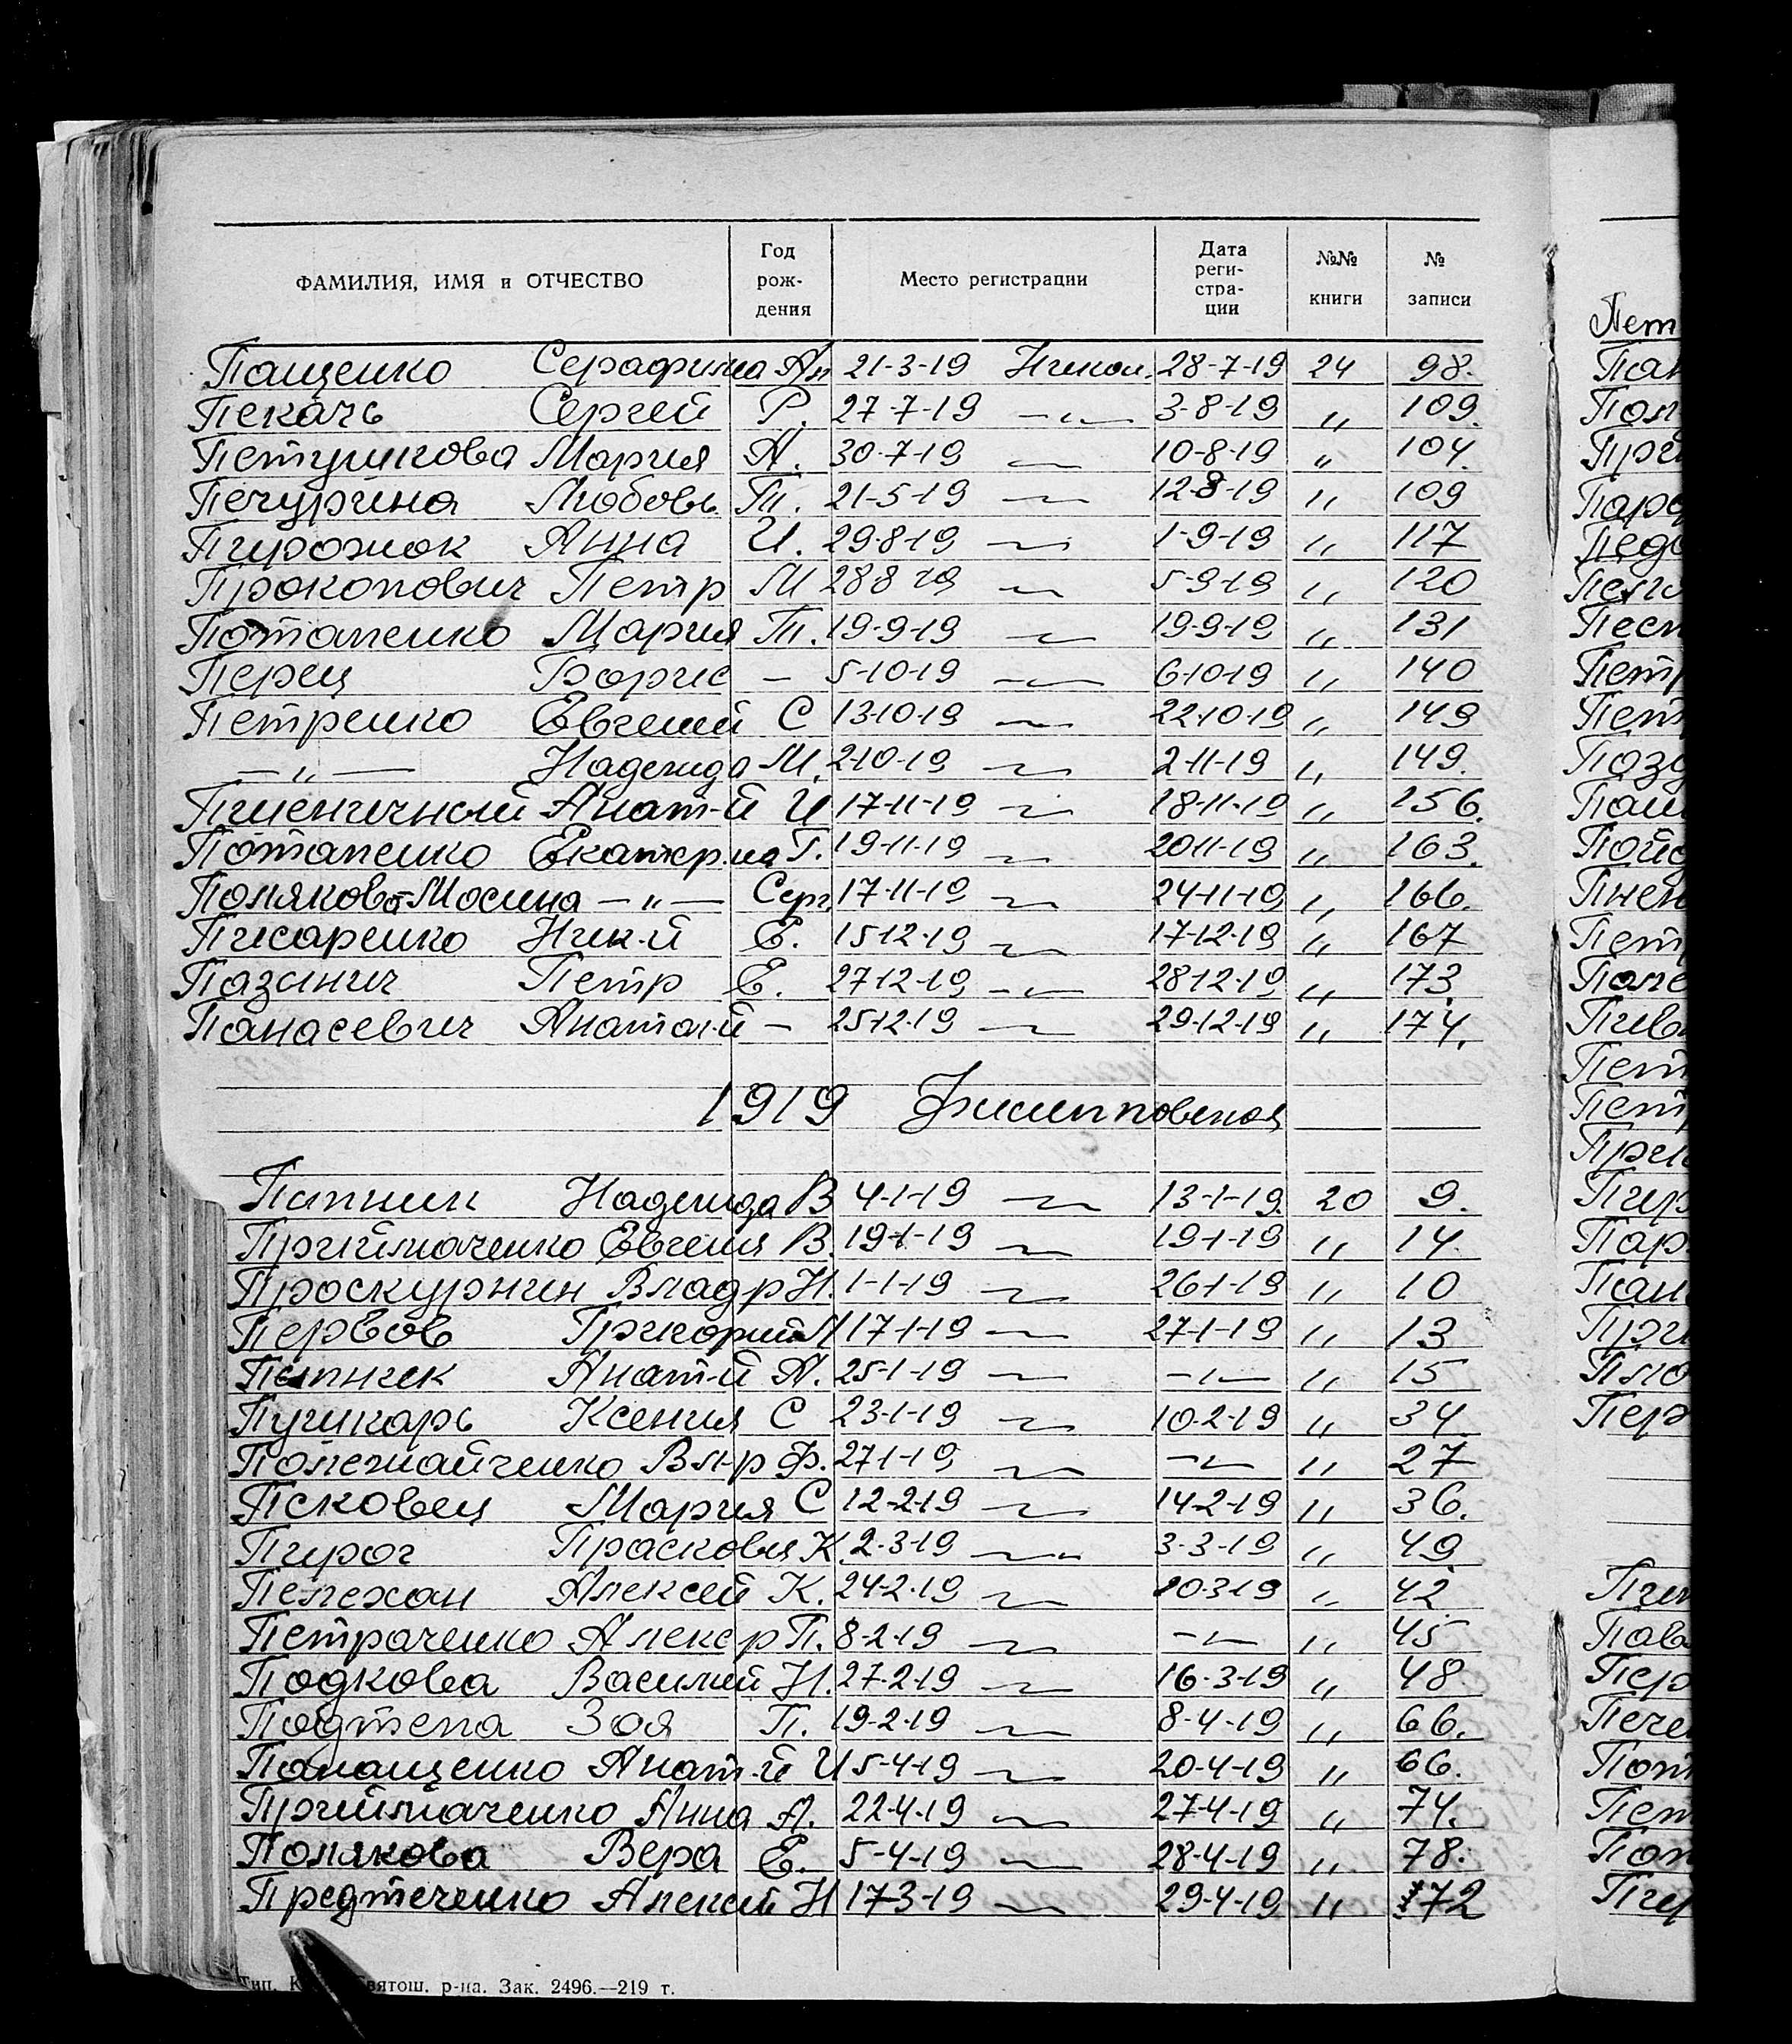 ФАМИЛИЯ, ИМЯ и ОТЧЕСТВО Год рож- дения Место регистрации Дата реги- стра- ции №№ книги № записи
Пащенко Серафима Ан 21-3-19 Никол. 28-7-19 24 98.
Пекачь Сергей Р. 27-7-19 -„- 3-8-19 „ 109.
Петушкова Мария А. 30-7-19 10-8-19 „ 104.
Печурина Любовь Т. 21-5-19 12-8-19 „ 109
Пирожок Анна И. 29-8-19 1-9-19 „ 117
Прокопович Петр М 28 8 19 5-9-19 „ 120
Потапенко Мария Т. 19-9-19 19-9-19 „ 131
Перец Борис - 5-10-19 6-10-19 „ 140
Петренко Евгений С 13-10-19 22-10-19 „ 149
-„- Надежда М. 2-10-19 2-11-19 „ 149.
Пшеничный Анат-й И 17-11-19 18-11-19 „ 156.
Потапенко Екатер.на Г. 19-11-19 20-11-19 „ 163.
Полякова-Мосина -„- Серг. 17-11-19 24-11-19 „ 166.
Писаренко Ник-й Е. 15-12-19 17-12-19 „ 167
Пазинич Петр Е. 27-12-19 28-12-19 „ 173
Панасевич Анатол-й - 25-12-19 29-12-19 „ 174.
1919 Филипповская
Надежда В 4-1-19 13-1-19. 20 9.
Прийmаченко Евгения В. 19-1-19 19-1-19 „ 14
Проскурнин Владр Н. 1-1-19 26-1-19 „ 10
Первов Григорий 17-1-19 27-1-19 „ 13
Анат-й А. 25-1-19 -„- „ 15
Пушкарь Ксения С 23-1-19 10-2-19 „ 34.
Полежайченко Вл-р Ф. 27-1-19 -„- „ 27
Псковец Мария С 12-2-19 14-2-19 „ 36.
Пирог Прасковья К. 2-3-19 3-3-19 „ 49
Пелехан Алексей К. 24-2-19 10-3-19 „ 42
Петраченко Алекс р П. 8-2-19 -„- „ 45
Подкова Василий Н. 27-2-19 16-3-19 „ 48
Подтепа Зоя П. 19-2-19 8-4-19 „ 66.
Панащенко Анат-й И 5-4-19 20-4-19 „ 66.
Приймаченко Анна А. 22-4-19 27-4-19 „ 74.
Полякова Вера Е. 5-4-19 28-4-19 „ 78.
Предтеченко Алексей Н 17-3-19 29-4-19 „ 72
Тип. Святош. р-на. Зак. 2496.—219 т.